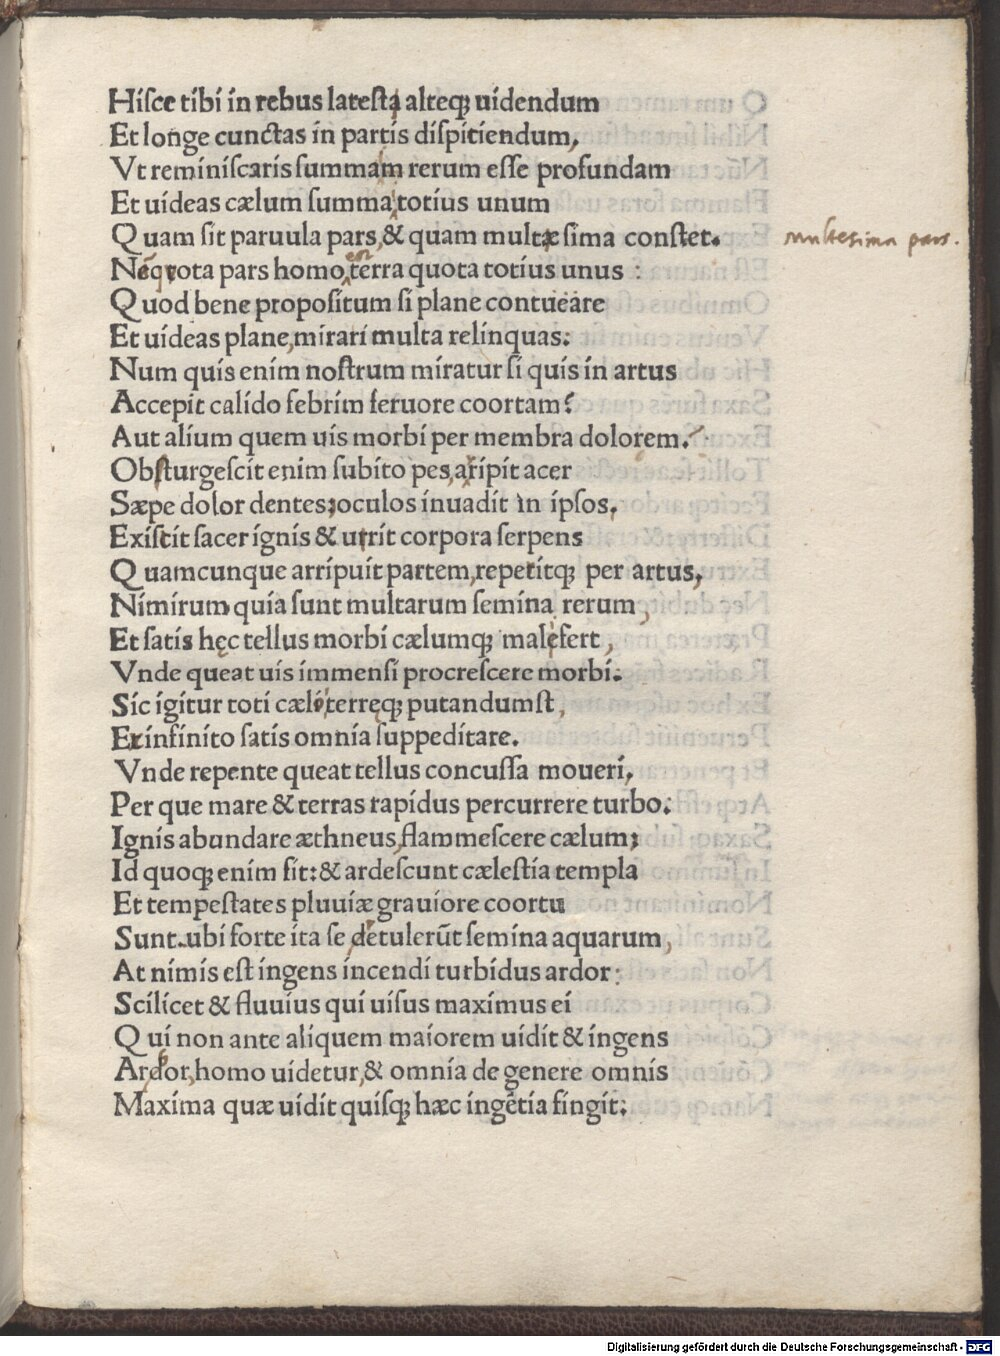 Hisce tibi in rebus latest alteq; uidendum
Et longe cunctas in partis dispitiendum,
Vt reminiscaris summam rerum esse profundam
Et uideas cælum summa totius unum
Quam sit paruula pars, & quam multæsima constet.
multesima pars.
Neqrota pars homo, terra quota totius unus :
Quod bene propositum si plane contueare
Et uideas plane, mirari multa relinquas:
Num quis enim nostrum miratur si quis in artus
Accepit calido febrim feruore coortam?
Aut alium quem uis morbi per membra dolorem.
Obsturgescit enim subito pes, aripit acer
Sæpe dolor dentes; oculos inuadit in ipsos.
Existit sacer ignis & urit corpora serpens
Quamcunque arripuit partem, repetitq; per artus,
Nimirum quia sunt multarum semina rerum,
Et satis hęc tellus morbi cælumq; malefert,
Vnde queat uis immensi procrescere morbi:
Sic igitur toti cælo terręq; putandumst,
Ex infinito satis omnia suppeditare.
Vnde repente queat tellus concussa moueri,
Per que mare & terras rapidus percurrere turbo:
Ignis abundare æthneus, flammescere cælum;
Id quoq; enim fit: & ardescunt cælestia templa
Et tempestates pluuiæ grauiore coortu
Sunt ubi forte ita se detulerūt semina aquarum,
At nimis est ingens incendi turbidus ardor:
Scilicet & fluuius qui uisus maximus ei
Qui non ante aliquem maiorem uidit & ingens
Ardor, homo uidetur, & omnia de genere omnis
Maxima quæ uidit quisq; hæc ingētia fingit:
Digitalisierung gefördert durch die Deutsche Forschungsgemeinschaft - DFG